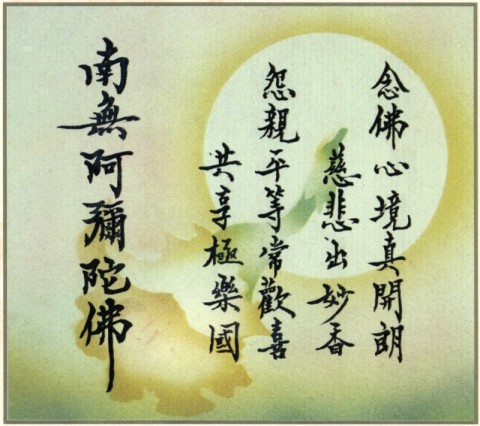 念佛心境真開朗
慈悲出妙香
怨親平等常歡喜
共享極樂國
南無阿彌陀佛